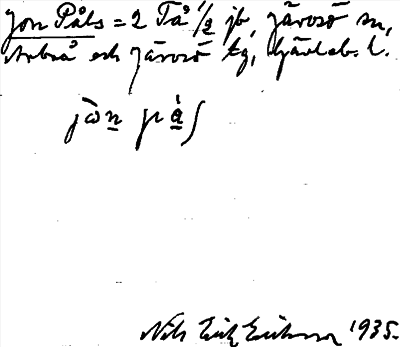 Jon Påls = 2 Tå 1/2 jb, Järvsö sn,
Arbrå och Järvsö tg, Gävleb. l.
Nils Erik Eriksson 1935.